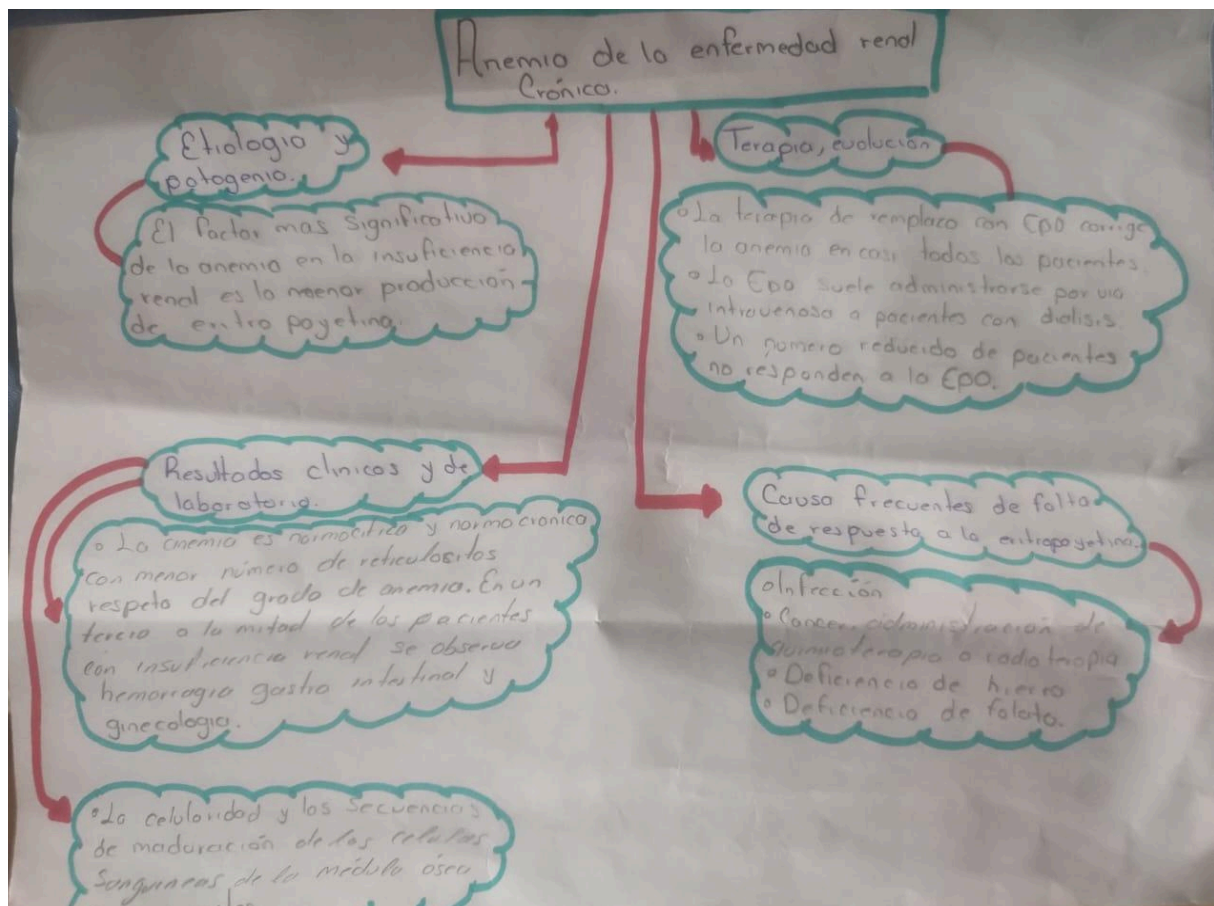 Anemia de la enfermedad renal
Crónica.
Etiologia y
patogenia.
El factor mas significativo
de la anemia en la insuficiencia
renal es la menor producción
de eritro poyetina.
Terapia, evolución
La terapia de remplaco con EPO corrige
la anemia en casi todos los pacientes.
La EPO suele administrarse por via
intravenosa a pacientes con dialisis.
Un numero reducido de pacientes
no responden a la EPO.
Resultados clinicos y de
laboratorio.
La anemia es normocitica y normocronica
con menor número de reticulositos
respeto del grado de anemia. En un
tercio a la mitad de los pacientes
con insuficiencia renal se observa
hemorragia gastro intestinal y
ginecologia.
Causa frecuentes de falta
de respuesta a la eritropoyetina.
Infección
Cancer, administración de
quimioterapia o radioterapia
Deficiencia de hierro
Deficiencia de folato.
La celularidad y las secuencias
de maduración de las celulas
Sanguineas de la médula ósea